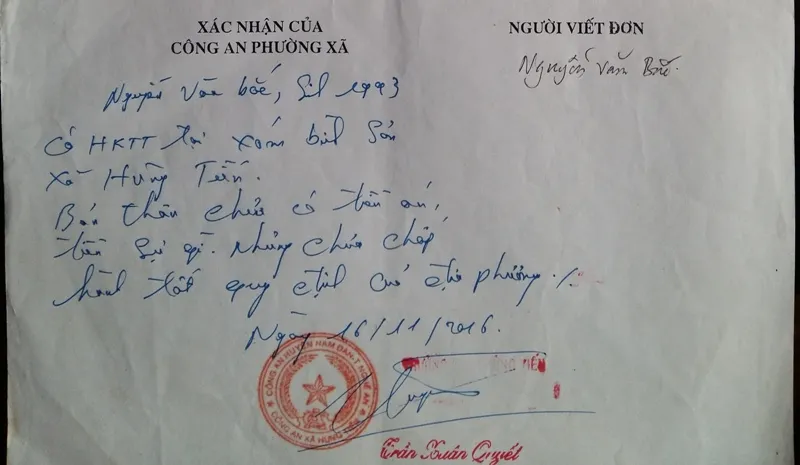 XÁC NHẬN CỦA
CÔNG AN PHƯỜNG XÃ
NGƯỜI VIẾT ĐƠN
Nguyễn Văn Bắc.
Nguyễn Văn bắc, Sinh 1993
Có HKTT tại xóm Sơn
Xã Hưng Tiến.
Bản thân chưa có tiền án,
tiền sự gì. Nhưng chưa chấp
hành tốt quy định của địa phương ./.
Ngày 16/11/2016.
CÔNG AN HUYỆN NAM ĐÀN-T NGHỆ AN
CÔNG AN XÃ HƯNG TIẾN
Trần Xuân Quyết